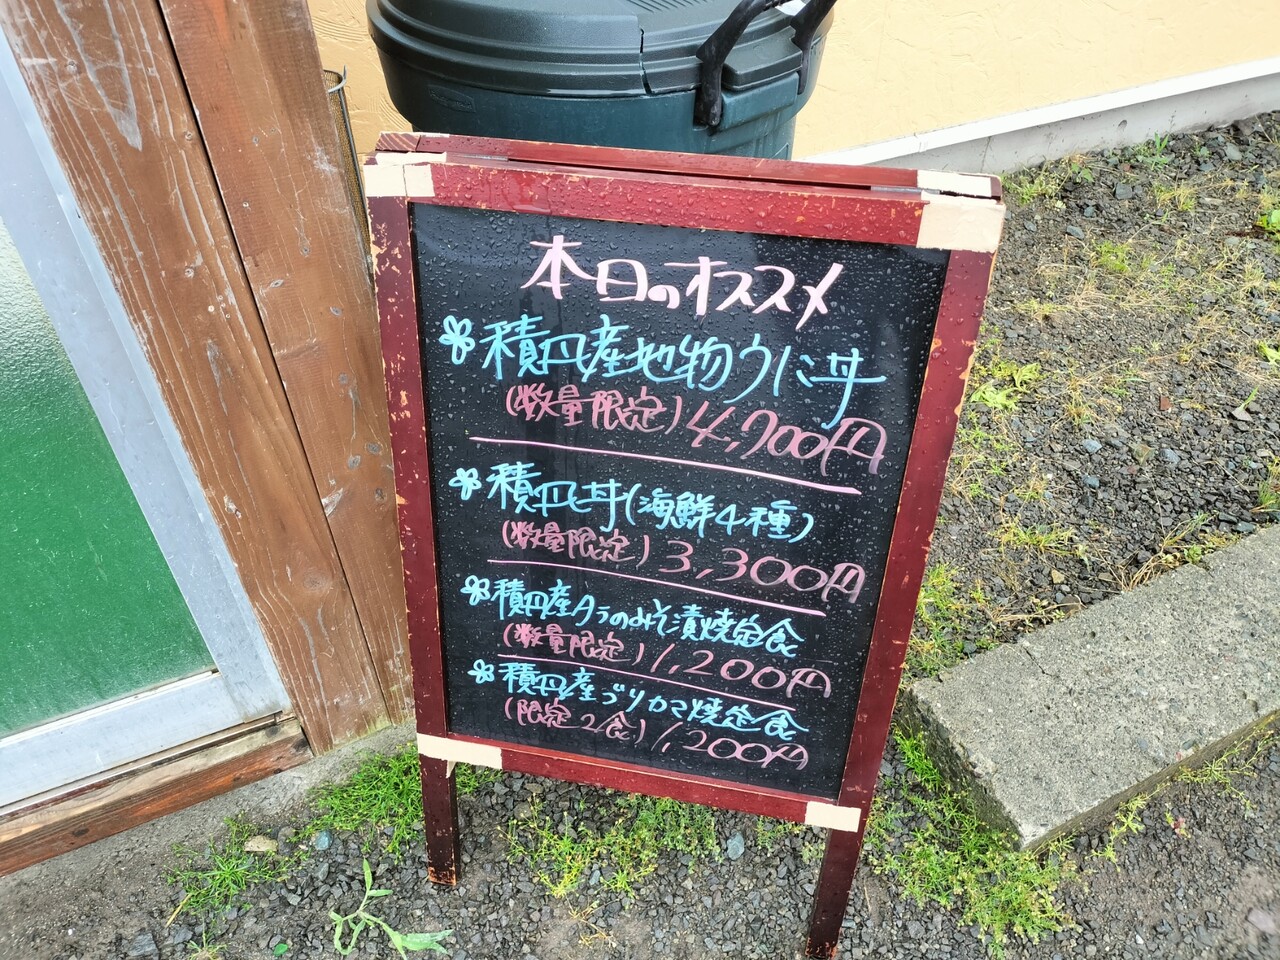 本日のオススメ
積丹産地物うに丼
(数量限定)4,700円
積丹丼(海鮮4種)
(数量限定)3,300円
積丹産タラのみそ漬焼定食
(数量限定)1,200円
積丹産ブリカマ焼定食
(限定2食)1,200円